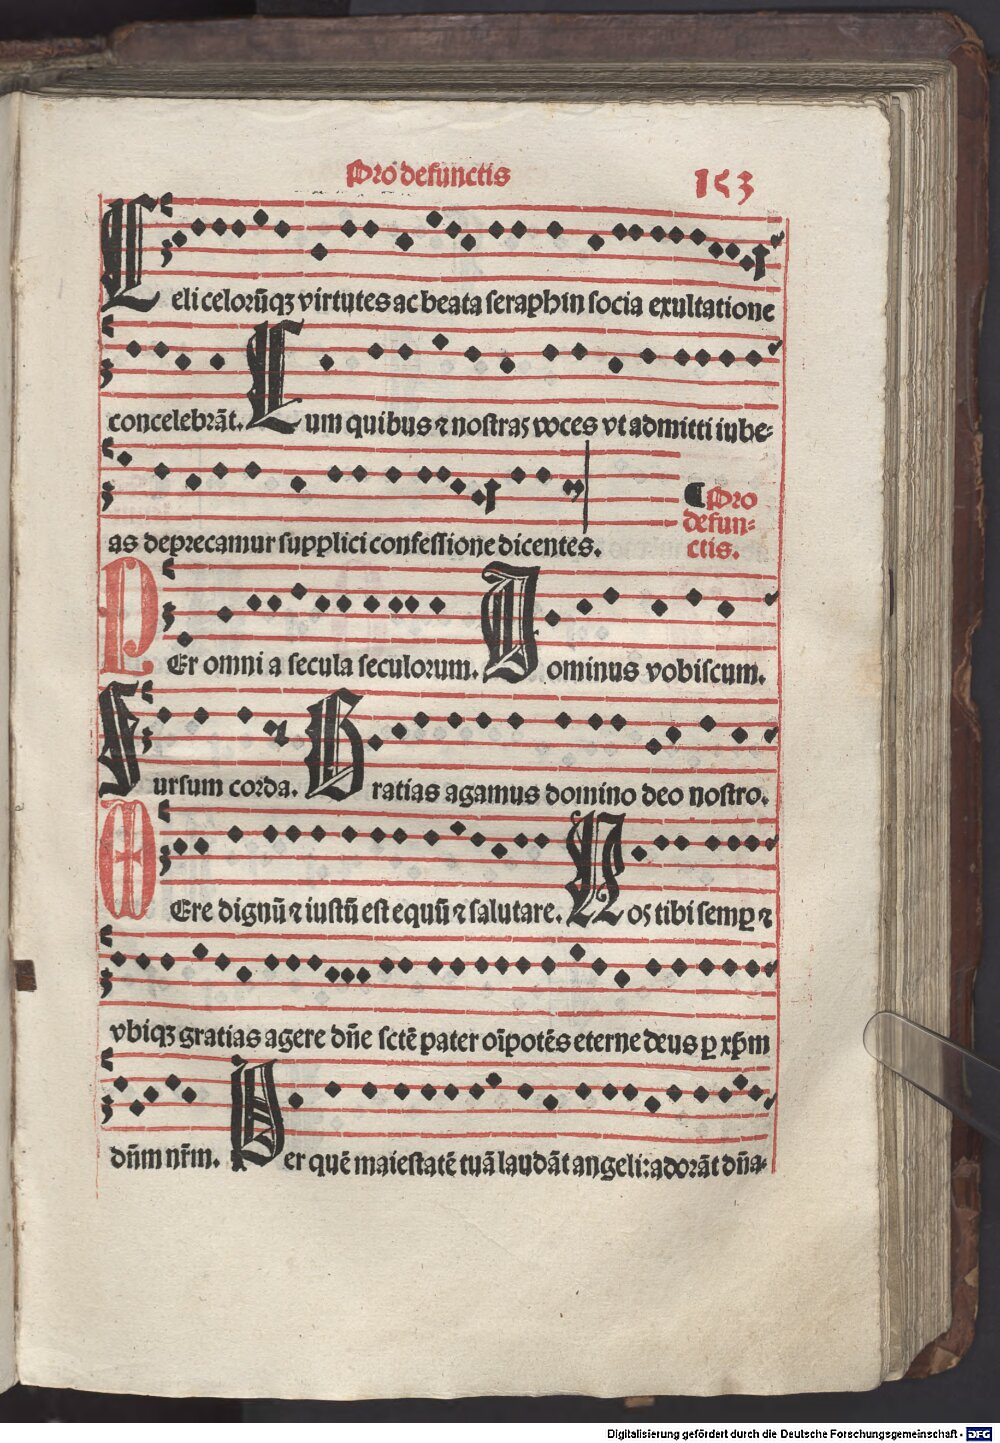 Pro defunctis
153
Celi celorūqꝫ virtutes ac beata ſeraphin ſocia exultatione
concelebrāt. Cum quibus ⁊ noſtras voces vt admitti iube⸗
as deprecamur ſupplici confeſſione dicentes.
¶ Pro
defun⸗
ctis.
PEr omni a ſecula ſeculorum. Dominus vobiſcum.
Surſum corda. Gratias agamus domino deo noſtro.
VEre dignū ⁊ iuſtū eſt equū ⁊ ſalutare. Nos tibi ſemꝑ ⁊
vbiqꝫ gratias agere dn̄e ſctē pater oīpotēs eterne deus ꝑ xp̄m
dn̄m nr̄m. Per quē maieſtatē tuā laudāt angeli: adorāt dn̄a⸗
Digitalisierung gefördert durch die Deutsche Forschungsgemeinschaft - DFG